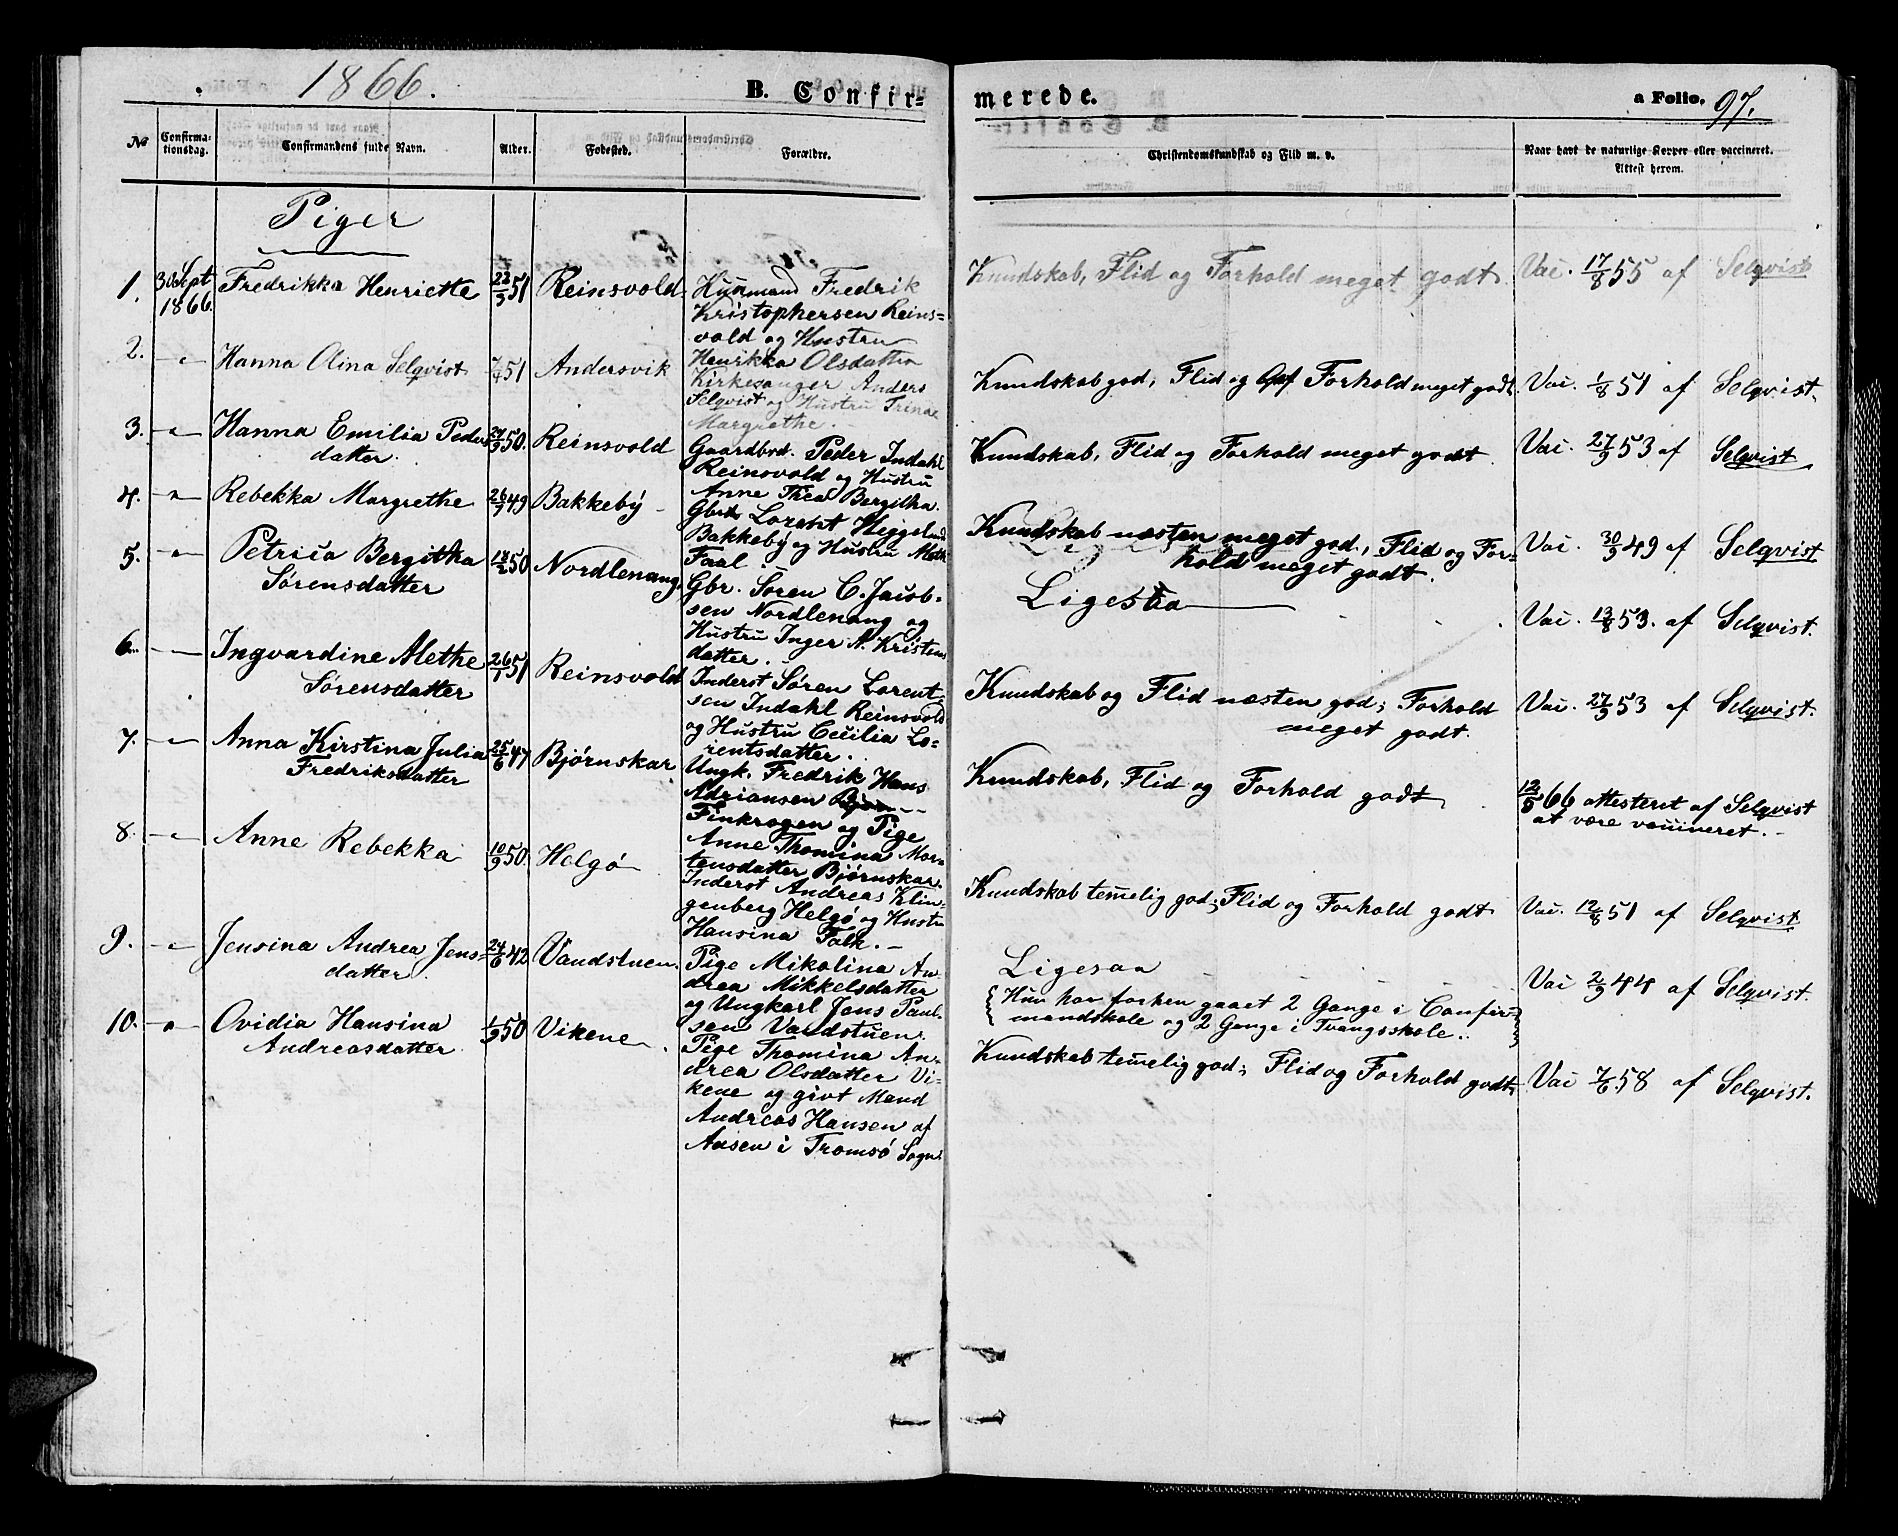 1866.
B. Confir-
merede.
a Folio. 97.
No
Confirma-
tionsdag.
Confirmandens fulde Navn.
Alder.
Fødested.
Forældre.
Christendomskundskab og Flid m. v.
Naar havt de naturlige Kopper eller vaccineret.
Attest herom.
Piger
1. 30 Sept
1866.
Fredrikka Henriette 22/3 51 Reinsvold
Husmand Fredrik
Kristophersen Reins-
vold og Hustru
Henrikka Olsdatter
Kundskab, Flid og Forhold meget godt. Vac. 17/8 55 af Selqvist
2. -"- Hanna Olina Selqvist 7/4 51 Andersvik
Kirkesanger Anders
Selqvist og Hustru Trinae
Margrethe.
Kundskab god, Flid og Forhold meget godt. Vac. 1/8 51 af Selqvist.
3. -"- Hanna Emilia Peders
datter. 24/9 50. Reinsvold
Gaardbrd. Peder Indahl
Reinsvold og Hustru
Anne Thea Bergitha.
Kundskab, Flid og Forhold meget godt. Vac. 27/9 53 af Selqvist
4. -"- Rebekka Margrethe 26/7 49 Bakkeby
Gbrdr Lorent Heggelund
Bakkeby og Hustru Meth
Foal
Kundskab næsten meget god., Flid og For-
hold meget godt. Vac. 30/9 49 af Selqvist
5. -"- Petrica Bergitha
Sørensdatter 12/2 50 Nordlenang.
Gbr. Søren C. Jacob-
sen Nordlenang og
Hustru Inger N. Kristens
datter.
Ligesaa Vac. 13/8 53. af Selqvist.
6. -"- Ingvardine Alethe
Sørensdatter 26/1 51 Reinsvold
Inderst Søren Lorent-
sen Indahl Reinsvold
og Hustru Cecilia Lo-
rentsdatter.
Kundskab og Flid næsten god; Forhold
meget godt. Vac. 27/9 53 af Selqvist.
7. -"- Anna Kirstina Julia
Fredriksdatter 25/6 47 Bjørnskar
Ungk. Fredrik Hans
Adriansen
Finkrogen og Pige
Anne Thomina Mor-
tensdatter Bjørnskar.
Kundskab, Flid og Forhold godt 12/5 66 attesteret af Selqvist
at være vaccineret.
8. -"- Anne Rebekka 10/9 50. Helgø
Inderst Andreas Klin-
genberg Helgø og Hustru
Hansina Falk.
Kundskab temelig god; Flid og Forhold godt Vac. 12/8 51 af Selqvist
9. -"- Jensina Andrea Jens-
datter. 24/6 42 Vandstuen.
Pige Mikalina An
drea Mikkelsdatter
og Ungkarl Jens Paul-
sen Vandstuen.
Ligesaa
Hun har forhen gaaet 2 Gange i Confir-
mandskole og 2 Gange i Tvangsskole.
Vac 2/9 44 af Selqvist.
10. -"- Ovidia Hansina
Andreasdatter 1/9 50 Vikene
Pige Thomina An-
drea Olsdatter Vi-
kene og givt Mand
Andreas Hansen af
Aasen i Tromsø Sogn.
Kundskab temelig god; Flid og Forhold godt. Vac 7/6 58 af Selqvist.